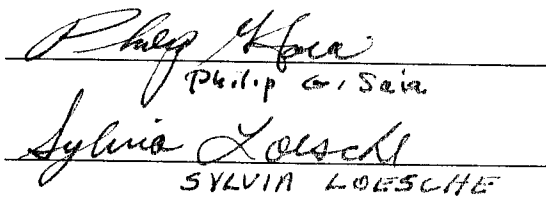 Philip G. Saia
Philip G. Saia
Sylvia Loesche
SYLVIA LOESCHE